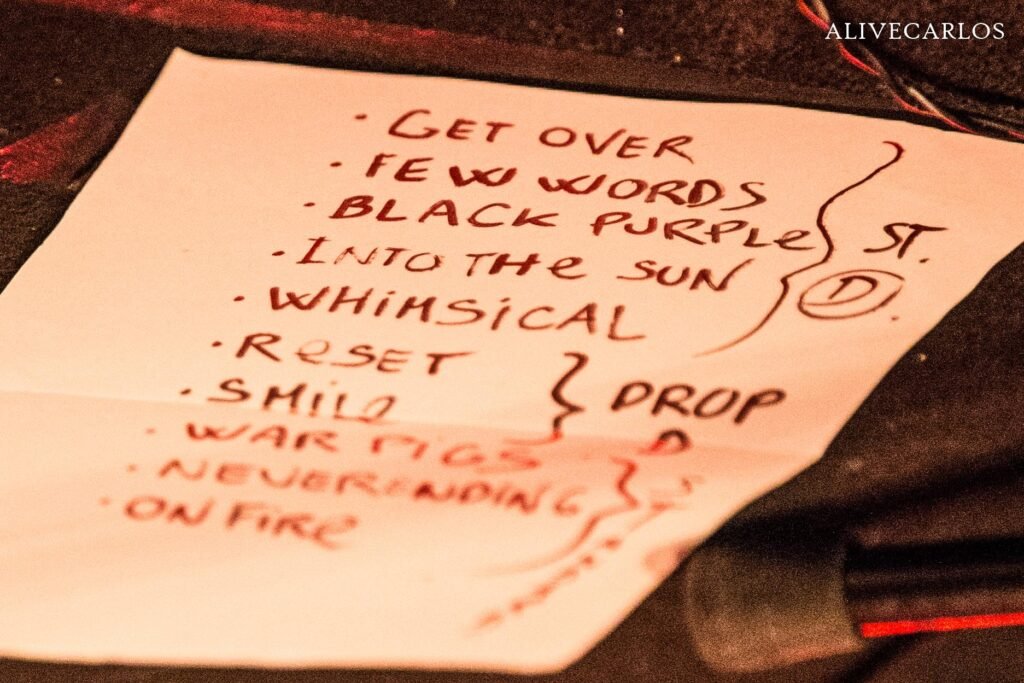 ALIVECARLOS
· GET OVER
· FEW WORDS
· BLACK PURPLe
· INTO THe SUN
· WHiMSiCAL
ST.
D.
· ReSET
· SMiLe
DROP
D
· WAR PiGS
· NEVERENDiNG
· ON FiRe
ST